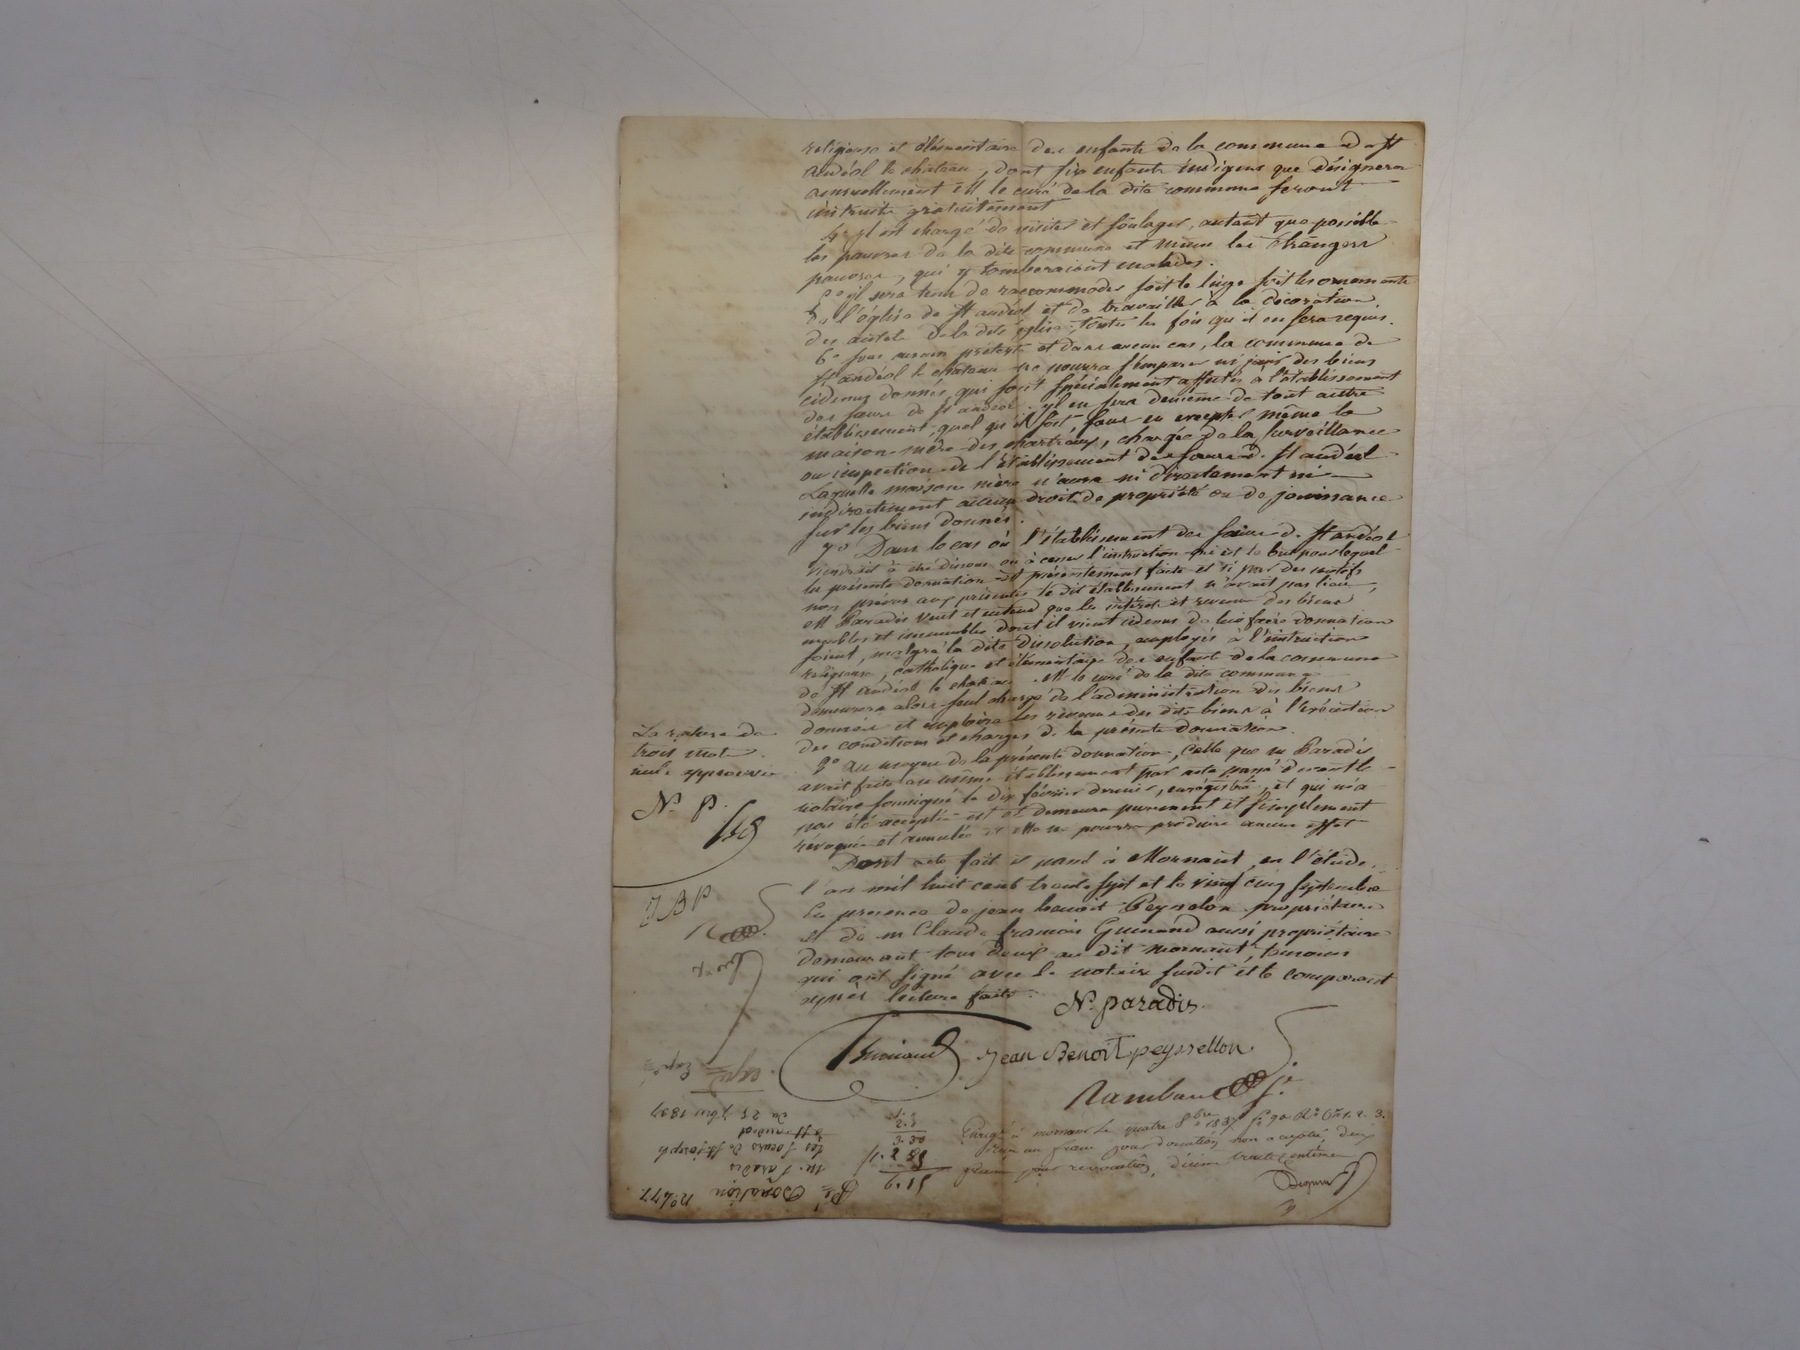 religieuse et élémentaire des enfants de la commune de St
andéol le château, dont six enfants indigens que désignera
annuellement Mr le curé de la dite commune seront
instruits gratuitement
4° il est chargé de visiter et soulager, autant que possible
les pauvres de la dite commune et même les étrangers
pauvres, qui y tomberaient malades.
5° il sera tenu de raccommoder soit le linge soit les ornements
de l'église de St andéol et de travailler à la décoration
des autels de la dite église, toutes les fois qu'il en sera requis.
6° sous aucun prétexte et dans aucun cas, la commune de
St andéol le château ne pourra s'emparer ni jouir des biens
cidessus donnés, qui sont spécialement affectés à l'établissement
des sœurs de St andéol. il en sera demême de tout autre
établissement, quel qu'il soit, sans en excepter même la
maison-mère des chartreux, chargée de la surveillance
ou inspection de l'établissement des sœurs de St andéol
Laquelle maison mère n'aura ni directement ni
indirectement aucun droit de propriété ou de jouissance
sur les biens donnés.
7° Dans le cas où l'établissement des sœurs de St andéol
viendrait à être dissous ou à cesser l'instruction qui est le but pour lequel
la présente donnation est présentement faite et si par des motifs
non prévus aux présentes le dit établissement n'avait pas lieu,
Mr Paradis veut et entend que les intérêts et revenus des biens
meubles et immeubles dont il vient cidessus de lui faire donnation
soient, malgré la dite dissolution, employés à l'instruction
religieuse, catholique et élémentaire des enfants de la commune
de St andéol le château. Mr le curé de la dite commune
demeurera alors seul chargé de l'administration des biens
donnés et emploira les revenus des dits biens à l'exécution
des conditions et charges de la présente donnation.
8° au moyen de la présente donnation, celle que m Paradis
avait faite au même établissement par acte passé devant le
notaire soussigné le dix février dernier, enregistré, et qui n'a
pas été acceptée est et demeure purement et simplement
révoquée et annulée et elle ne pourra produire aucun effet
Dont acte fait et passé à Mornant, en l'étude,
l'an mil huit cent trente sept et le vingt cinq septembre
En présence de jean benoit Peysselon propriétaire
et de m Claude françois Guinand aussi propriétaire
demeurant tous deux au dit mornant, témoins
qui ont signé avec le notaire susdit et le comparant
après lecture faite.
La rature de
trois mots
nuls approuvée
N. P.
J B P
N. paradis
Guinand
Jean Benoit peyssellon
Rambaud
Enregé à mornant le quatre 8bre 1837 fo 90 Ro Ces 1. 2. 3.
Reçu un franc pour donation non acceptée, deux
francs pour révocation, décime trente centimes
Donation No 477
m. Paradis
Les Soeurs de St joseph
à St andéol
du 25 7bre 1837